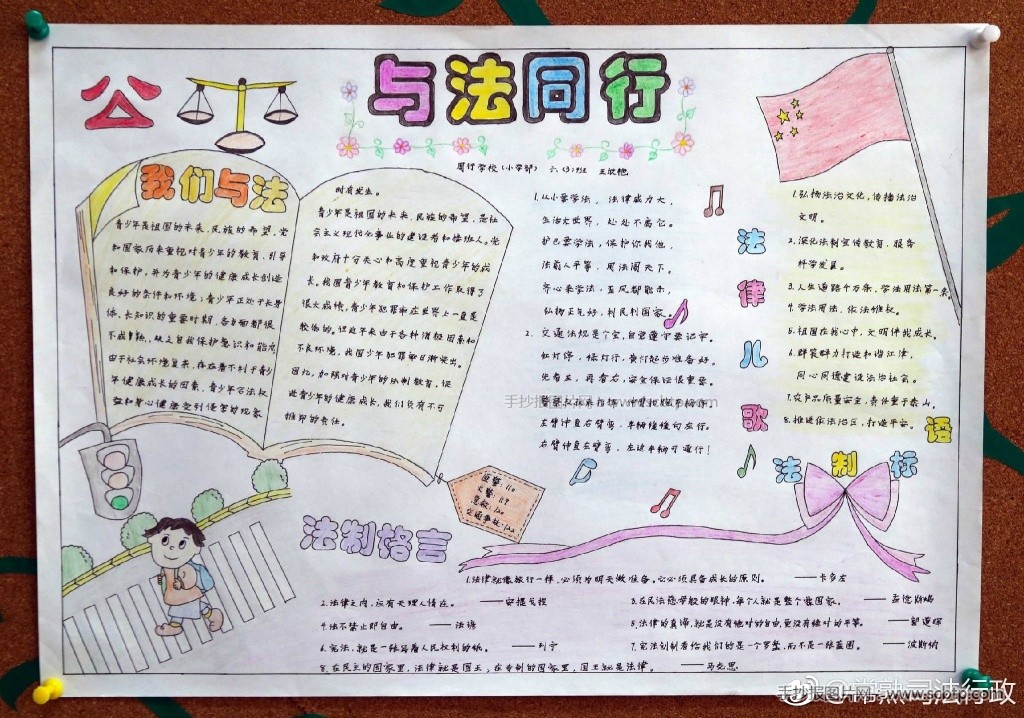 公
与法同行
周行学校(小学部) 六(3)班
我们与法
青少年是祖国的未来,民族的希望。党
和国家历来重视对青少年的教育、引导
和保护,并为青少年的健康成长创造
良好的条件和环境;青少年正处于长身
体、长知识的重要时期,各方面都很
不成熟,缺乏自我保护意识和能力
由于社会环境复杂,存在着不利于青少
年健康成长的因素,青少年合法权
益和身心健康受到侵害的现象
时有发生。
青少年是祖国的未来、民族的希望,是社
会主义现代化事业的建设者和接班人。党
和政府十分关心和高度重视青少年的成
长。我国青少年教育和保护工作取得了
很大成绩,青少年犯罪率在世界上一直是
较低的。但近年来由于各种消极因素和
不良环境,我国少年犯罪率日渐突出。
因此,加强对青少年的法制教育,促
进青少年的健康成长,我们负有不可
推卸的责任。
1.从小要学法, 法律威力大,
生活大世界, 处处不离它。
护己要学法,保护你我他,
法前人平等, 用法闯天下。
齐心来学法,
弘扬正气好,利民利国家。
2. 交通法规是个宝,自觉遵守要记牢。
红灯停,绿灯行,黄灯起步准备好。
先看左,再看右,安全保证很重要。
左臂伸直右臂弯,
右臂伸直左臂弯,左边车辆可通行!
法律儿歌
1.弘扬法治文化,传播法治
文明。
2.深化法制宣传教育,服务
科学发展。
3.人生道路千万条,学法用法第一条
4.学法用法,依法维权。
5.祖国在我心中,文明伴我成长。
6.群策群力打造和谐江津,
同心同德建设法治社会。
7.农产品质量安全,责任重于泰山。
8.推进依法治区,打造平安。
法制标语
匪警:110
火警:119
急救:120
交通事故:122
法制格言
1.法律就像旅行一样,必须为明天做准备。它必须具备成长的原则。 ——卡多左
2.法律之内,应有天理人情在。 ——安提戈捏
3.在民法慈母般的眼神,每个人就是整个的国家。 ——孟德斯鸠
4.法不禁止即自由。 ——法谚
5.法律的真谛,就是没有绝对的自由,更没有绝对的平等。 ——郭道晖
6.宪法,就是一张写着人民权利的纸。 ——列宁
7.宪法创制者给我们的是一个罗盘,而不是一张蓝图。 ——波斯纳
8.在民主的国家里,法律就是国王;在专制的国家里,国王就是法律。 ——马克思
手抄报图片网 - www.scbtp.com
@常熟司法行政
手抄报图片网 - www.scbtp.com